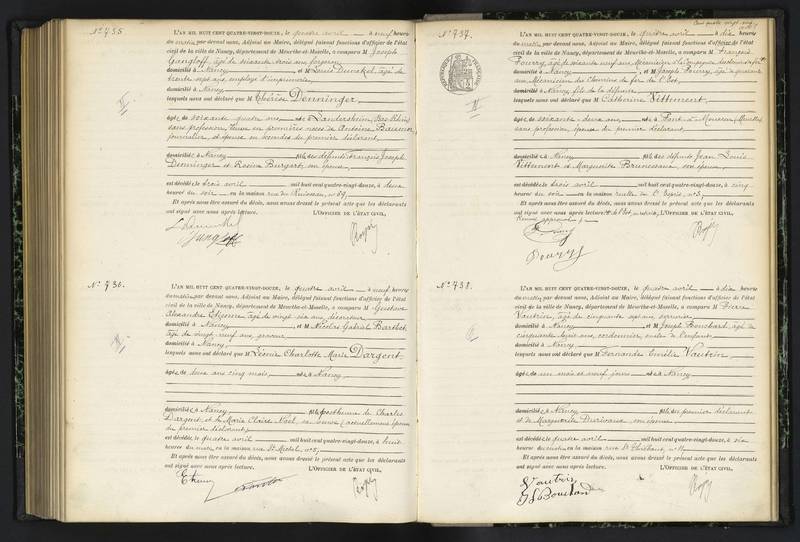 N° 735
L'AN MIL HUIT CENT QUATRE-VINGT-DOUZE, le quatre avril à neuf heures
du matin par devant nous, Adjoint au Maire, délégué faisant fonctions d'officier de l'état
civil de la ville de Nancy, département de Meurthe-et-Moselle, a comparu M Joseph
Gangloff, âgé de soixante trois ans, forgeron
domicilié à Nancy et M Louis âgé de
trente sept ans, employé d'imprimerie
domicilié à Nancy
lesquels nous ont déclaré que M Thérèse Denninger,
âgée de soixante quatre ans, née à Landersheim, Bas-Rhin,
sans profession, veuve en premières noces de Antoine
journalier, et épouse en secondes du premier déclarant
domiciliée à Nancy fille des défunts François Joseph
Denninger et Rosine Burgart, son épouse,
est décédée le trois avril mil huit cent quatre-vingt-douze, à deux
heures du soir en la maison rue du Ruisseau, n° 59,
Et après nous être assuré du décès, nous avons dressé le présent acte que les déclarants
ont signé avec nous après lecture. L'OFFICIER DE L'ÉTAT CIVIL,
N° 736.
L'AN MIL HUIT CENT QUATRE-VINGT-DOUZE, le quatre avril à neuf heures
du matin par devant nous, Adjoint au Maire, délégué faisant fonctions d'officier de l'état
civil de la ville de Nancy, département de Meurthe-et-Moselle, a comparu M Gustave
Alexandre Etienne âgé de vingt six ans, décorateur
domicilié à Nancy et M Nicolas Gabriel Barthet,
âgé de vingt neuf ans, graveur
domicilié à Nancy,
lesquels nous ont déclaré que M Léonie Charlotte Marie Dargent
âgée de deux ans cinq mois, née à Nancy,
domiciliée à Nancy fille posthume de Charles
Dargent et de Marie Claire Noel, sa veuve (actuellement épouse
du premier déclarant)
est décédée le quatre avril mil huit cent quatre-vingt-douze, à huit
heures du matin, en la maison rue St Michel, n° 5,
Et après nous être assuré du décès, nous avons dressé le présent acte que les déclarants
ont signé avec nous après lecture. L'OFFICIER DE L'ÉTAT CIVIL,
N° 737.
L'AN MIL HUIT CENT QUATRE-VINGT-DOUZE, le quatre avril à dix heures
du matin par devant nous, Adjoint au Maire, délégué faisant fonctions d'officier de l'état
civil de la ville de Nancy, département de Meurthe-et-Moselle, a comparu M François
Pourry, âgé de soixante neuf ans, Mécanicien
domicilié à Nancy et M Joseph Pourry, âgé de quarante
ans Mécanicien des Chemins de fer de l'Est,
domicilié à Nancy, fils de la défunte
lesquels nous ont déclaré que M Catherine Vittement,
âgée de soixante deux ans, née à Pont-à-Mousson (Meurthe)
sans profession, épouse du premier déclarant
domiciliée à Nancy fille des défunts Jean Louis
Vittement et Marguerite son épouse,
est décédée le trois avril mil huit cent quatre-vingt-douze, à cinq
heures du soir en la maison ruelle de n° 3,
Et après nous être assuré du décès, nous avons dressé le présent acte que les déclarants
ont signé avec nous après lecture. L'OFFICIER DE L'ÉTAT CIVIL,
Pourry
N° 738.
L'AN MIL HUIT CENT QUATRE-VINGT-DOUZE, le quatre avril à dix heures
du matin par devant nous, Adjoint au Maire, délégué faisant fonctions d'officier de l'état
civil de la ville de Nancy, département de Meurthe-et-Moselle, a comparu M Pierre
Vautrin, âgé de cinquante sept ans, serrurier
domicilié à Nancy et M Joseph Bouchard, âgé de
cinquante ans, cordonnier, oncle de l'enfant,
domicilié à Nancy,
lesquels nous ont déclaré que M Fernande Emélie Vautrin,
âgée de un mois et neuf jours née à Nancy,
domiciliée à Nancy fille du premier déclarant
et de Marguerite son épouse
est décédée le quatre avril mil huit cent quatre-vingt-douze, à six
heures du matin en la maison rue St Thiébaut, n° 11,
Et après nous être assuré du décès, nous avons dressé le présent acte que les déclarants
ont signé avec nous après lecture. L'OFFICIER DE L'ÉTAT CIVIL,
Vautrin